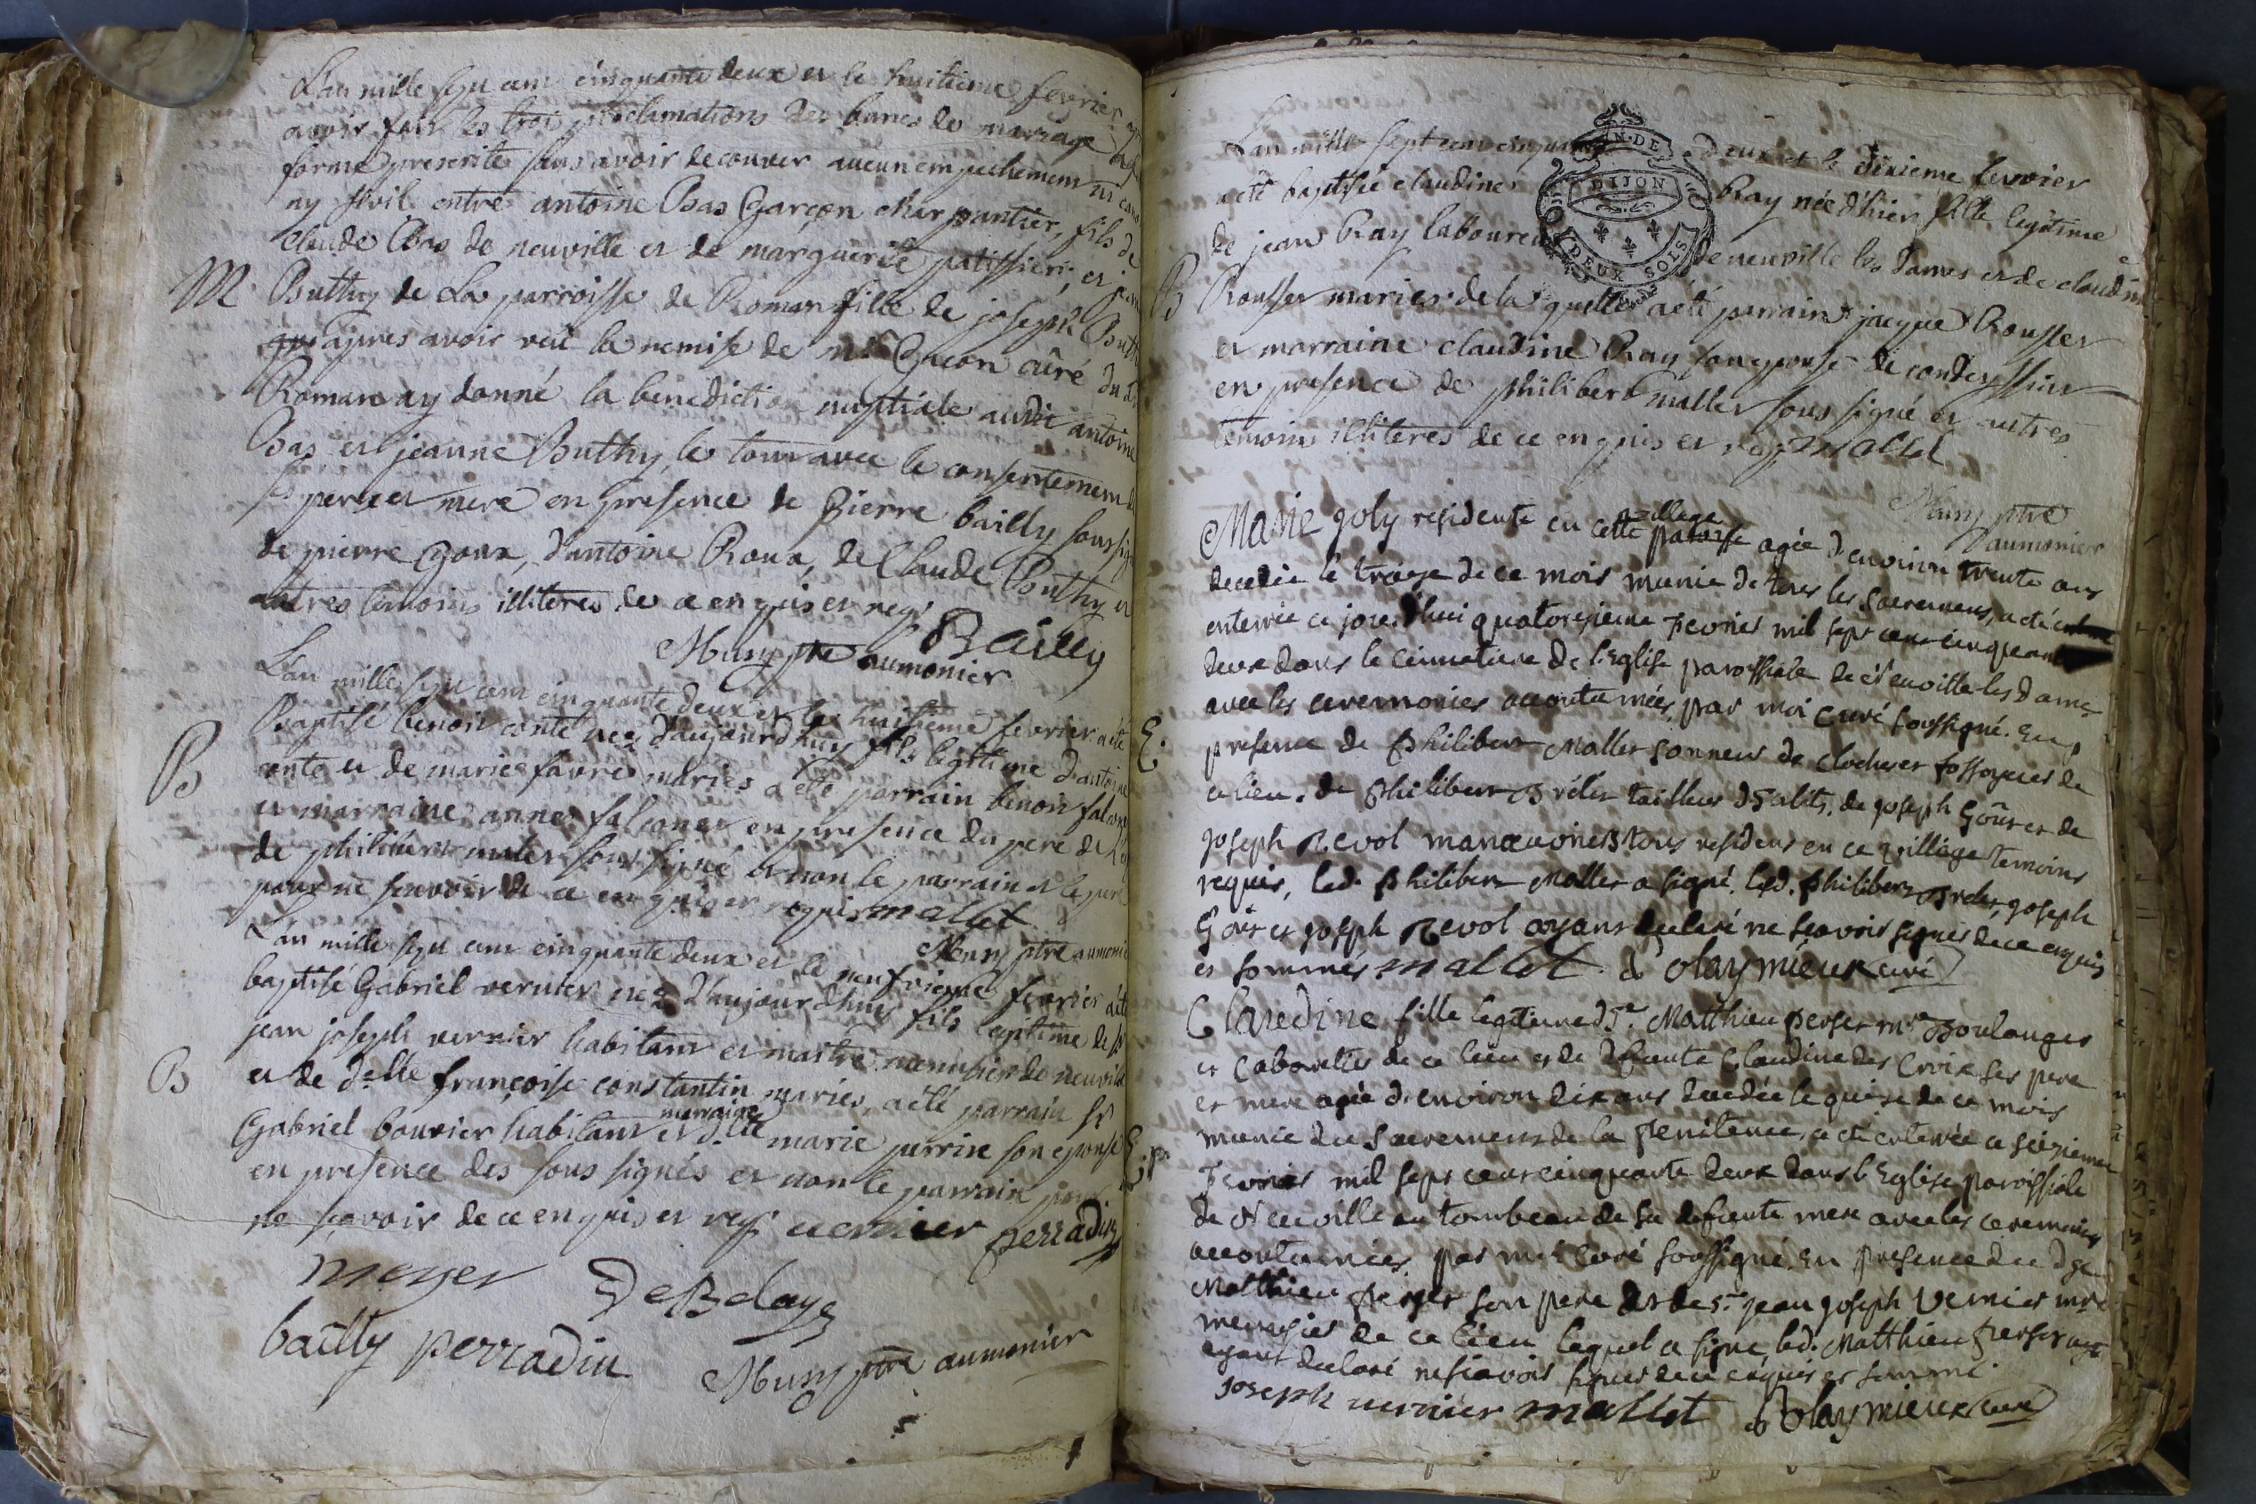 L'an mille sept cent cinquante deux et le huitieme fevrier
avoir fait les trois proclamations des bancs de mariage
forme prescrite sans avoir decouvert aucun empechement ni
ay entre antoine Bas Garçon charpantier, fils de
Claude Bas de neuville et de marguerite patissier, et
M
Buthy de la parroisse de Roman fille de joseph
apres avoir veu la remise de mr curé du
Roman ay donné la benediction nuptiale audit antoine
Bas et jeanne Buthy, le tout avec le consentement
pere et mere en presence de Pierre bailly
de pierre Goux, d'antoine Roux, de Claude Bouthy et
autres temoins illiteres de ce enquis et req.
Bailly
ptre aumonier
L'an mille sept cent cinquante deux et le huitieme fevrier a été
B
Baptisé benoit conte nez d'aujourdhuy fils legitime d'antoine
conte et de marie favre mariés a été parrain benoit
et marraine anne falconet en presence du pere de
de philibert malet sous signé et non le parrain et le pere
pour ne sçavoir de ce enquis et requis mallet
ptre aumonier
L'an mille sept cent cinquante deux et le neufvieme fevrier a été
baptisé Gabriel vernier nez d'aujourdhuy fils legitime de
jean joseph vernier habitant et maitre menusier de neuville
B
et de delle françoise constantin mariés, a été parrain sr
Gabriel bouvier habitant et marraine dlle marie perrin son epouse
en presence des sous signés et non le parrain pour
ne sçavoir de ce enquis et req vernier perradin
meyer DeBelays
bailly perradin
ptre aumonier
L'an mille sept cent cinquante deux et le dixieme fevrier
GEN. DE DIJON
DEUX SOLS
a été baptisée claudine Ray née d'hier fille legitime
de jean Ray laboureur de neuville les dames et de claudine
B
Rousset mariés de laquelle a été parrain jacque Rousset
et marraine claudine Ray son epouse de condeyssiat
en presence de philibert mallet sous signé et autres
temoins illiteres de ce enquis et req mallet
ptre
aumonier
Marie joly residente en cette village paroisse agée d'environ trente ans
decedée le treize de ce mois munie de tous les sacremens, a été
enterrée ce jourd'hui quatorzieme Fevrier mil sept cent cinquante
deux dans le cimetiere de l'Eglise paroissiale de Neuville les dames
avec les ceremonies accoutumées, par moi curé soussigné. En
E.
presence de Philibert Mallet sonneur de cloches et fossoyeur de
ce lieu, de Philibert tailleur d'abits, de joseph Goûr et de
joseph Revol manœuvriers tous residens en ce village temoins
requis, led. Philibert Mallet a signé, led. Philibert joseph
Goûr et joseph Revol ayans declaré ne sçavoir signer de ce enquis
et sommés mallet. curé
Claudine fille legitime d'Sr. Matthieu perset me Boulanger
et Cabaretier de ce lieu et de defunte Claudine des Croix ses pere
et mere agée d'environ dix ans decedée le quinze de ce mois
munie du sacrement de la Penitence, a été enterrée ce seizieme
Fevrier mil sept cent cinquante deux dans l'Eglise paroissiale
de Neuville au tombeau de sa defunte mere avec les ceremonies
accoutumées, par moi Curé soussigné. En presence du
Matthieu perset son pere et de sr. jean joseph Vernier me
menusier de ce lieu lequel a signé, led. Matthieu perset
ayant declaré ne sçavoir signer de ce enquis et sommé
joseph vernier mallet curé